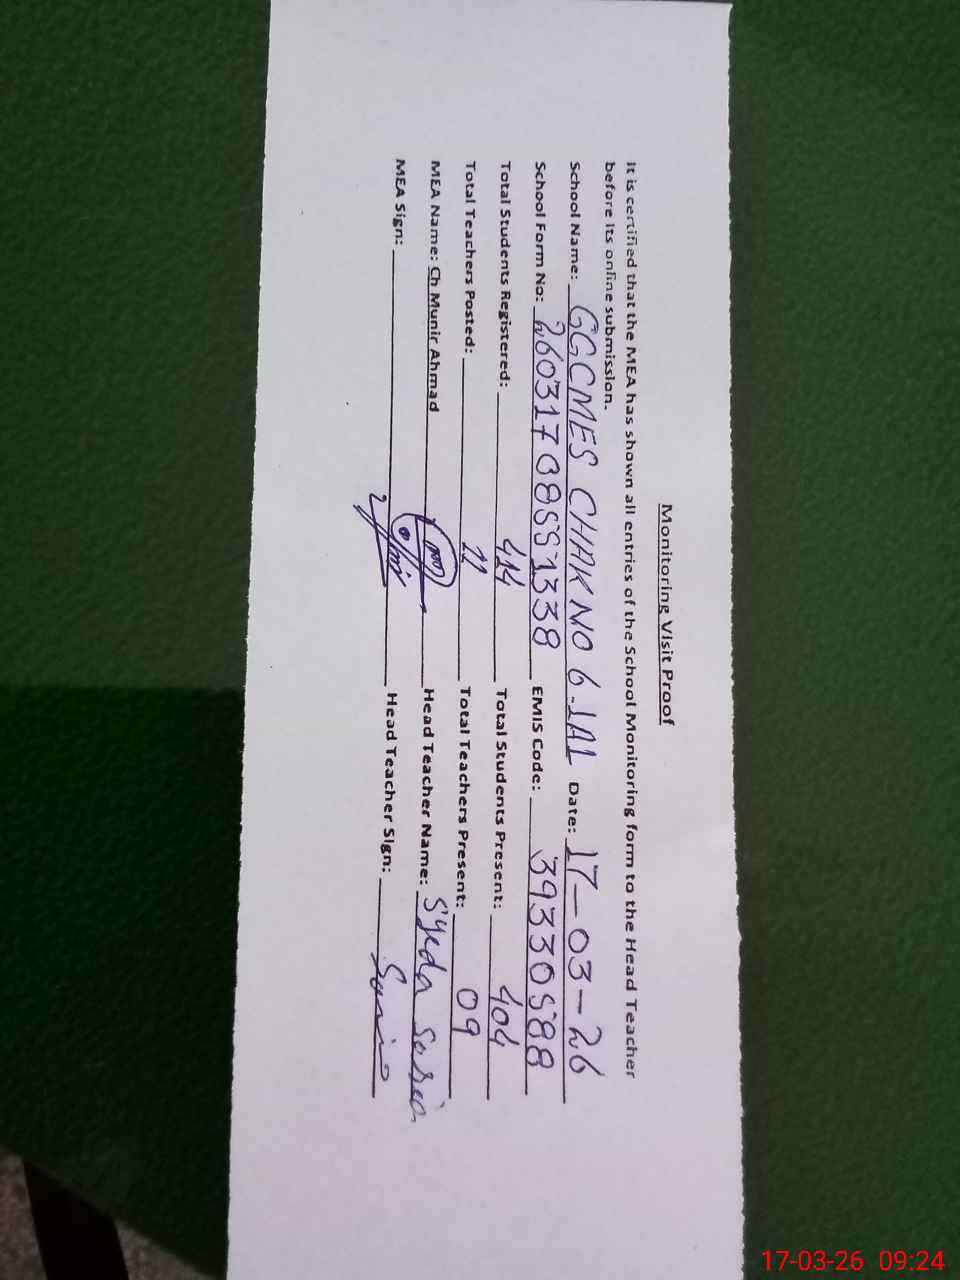 Monitoring Visit Proof
It is certified that the MEA has shown all entries of the School Monitoring form to the Head Teacher
before its online submission.
School Name: GGCMES CHAK NO 6.1A1 Date: 17-03-26
School Form No: 26031708551338 EMIS Code: 39330588
Total Students Registered: 414 Total Students Present: 404
Total Teachers Posted: 11 Total Teachers Present: 09
MEA Name: Ch Munir Ahmad Head Teacher Name: Syeda
MEA Sign: Head Teacher Sign:
17-03-26 09:24